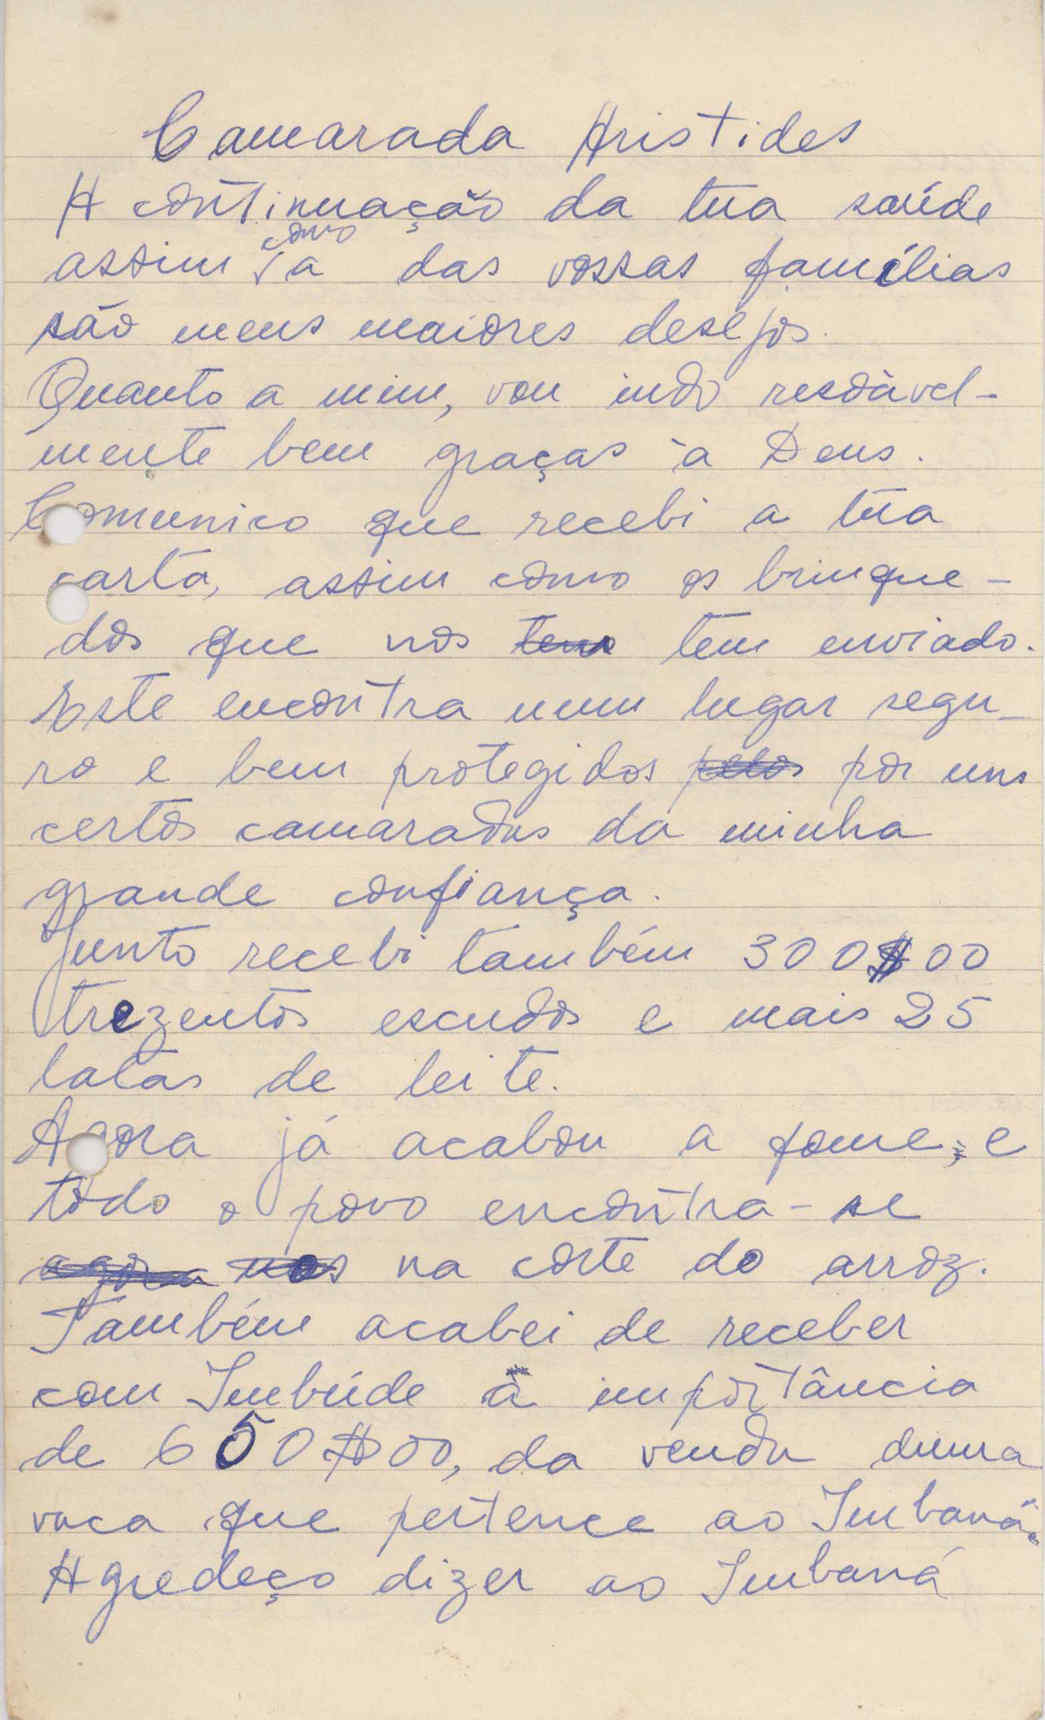 Camarada Aristides
A continuação da tua saúde
assim como a das vossas famílias
são meus maiores desejos.
Quanto a mim, vou indo resoàvel-
mente bem graças à Deus.
Comunico que recebi a tua
carta, assim como os brinque-
dos que nos tem enviado.
Este encontra num lugar segu-
ro e bem protegidos pelos por uns
certos camaradas da minha
grande confiança.
Junto recebi também 300$00
trezentos escudos e mais 25
latas de leite.
Agora já acabou a fome, e
todo o povo encontra-se
agora nos na corte do arroz.
Também acabei de receber
com Imbúde a importância
de 650$00, da venda duma
vaca que pertence ao Imbaná.
Agredeço dizer ao Imbaná